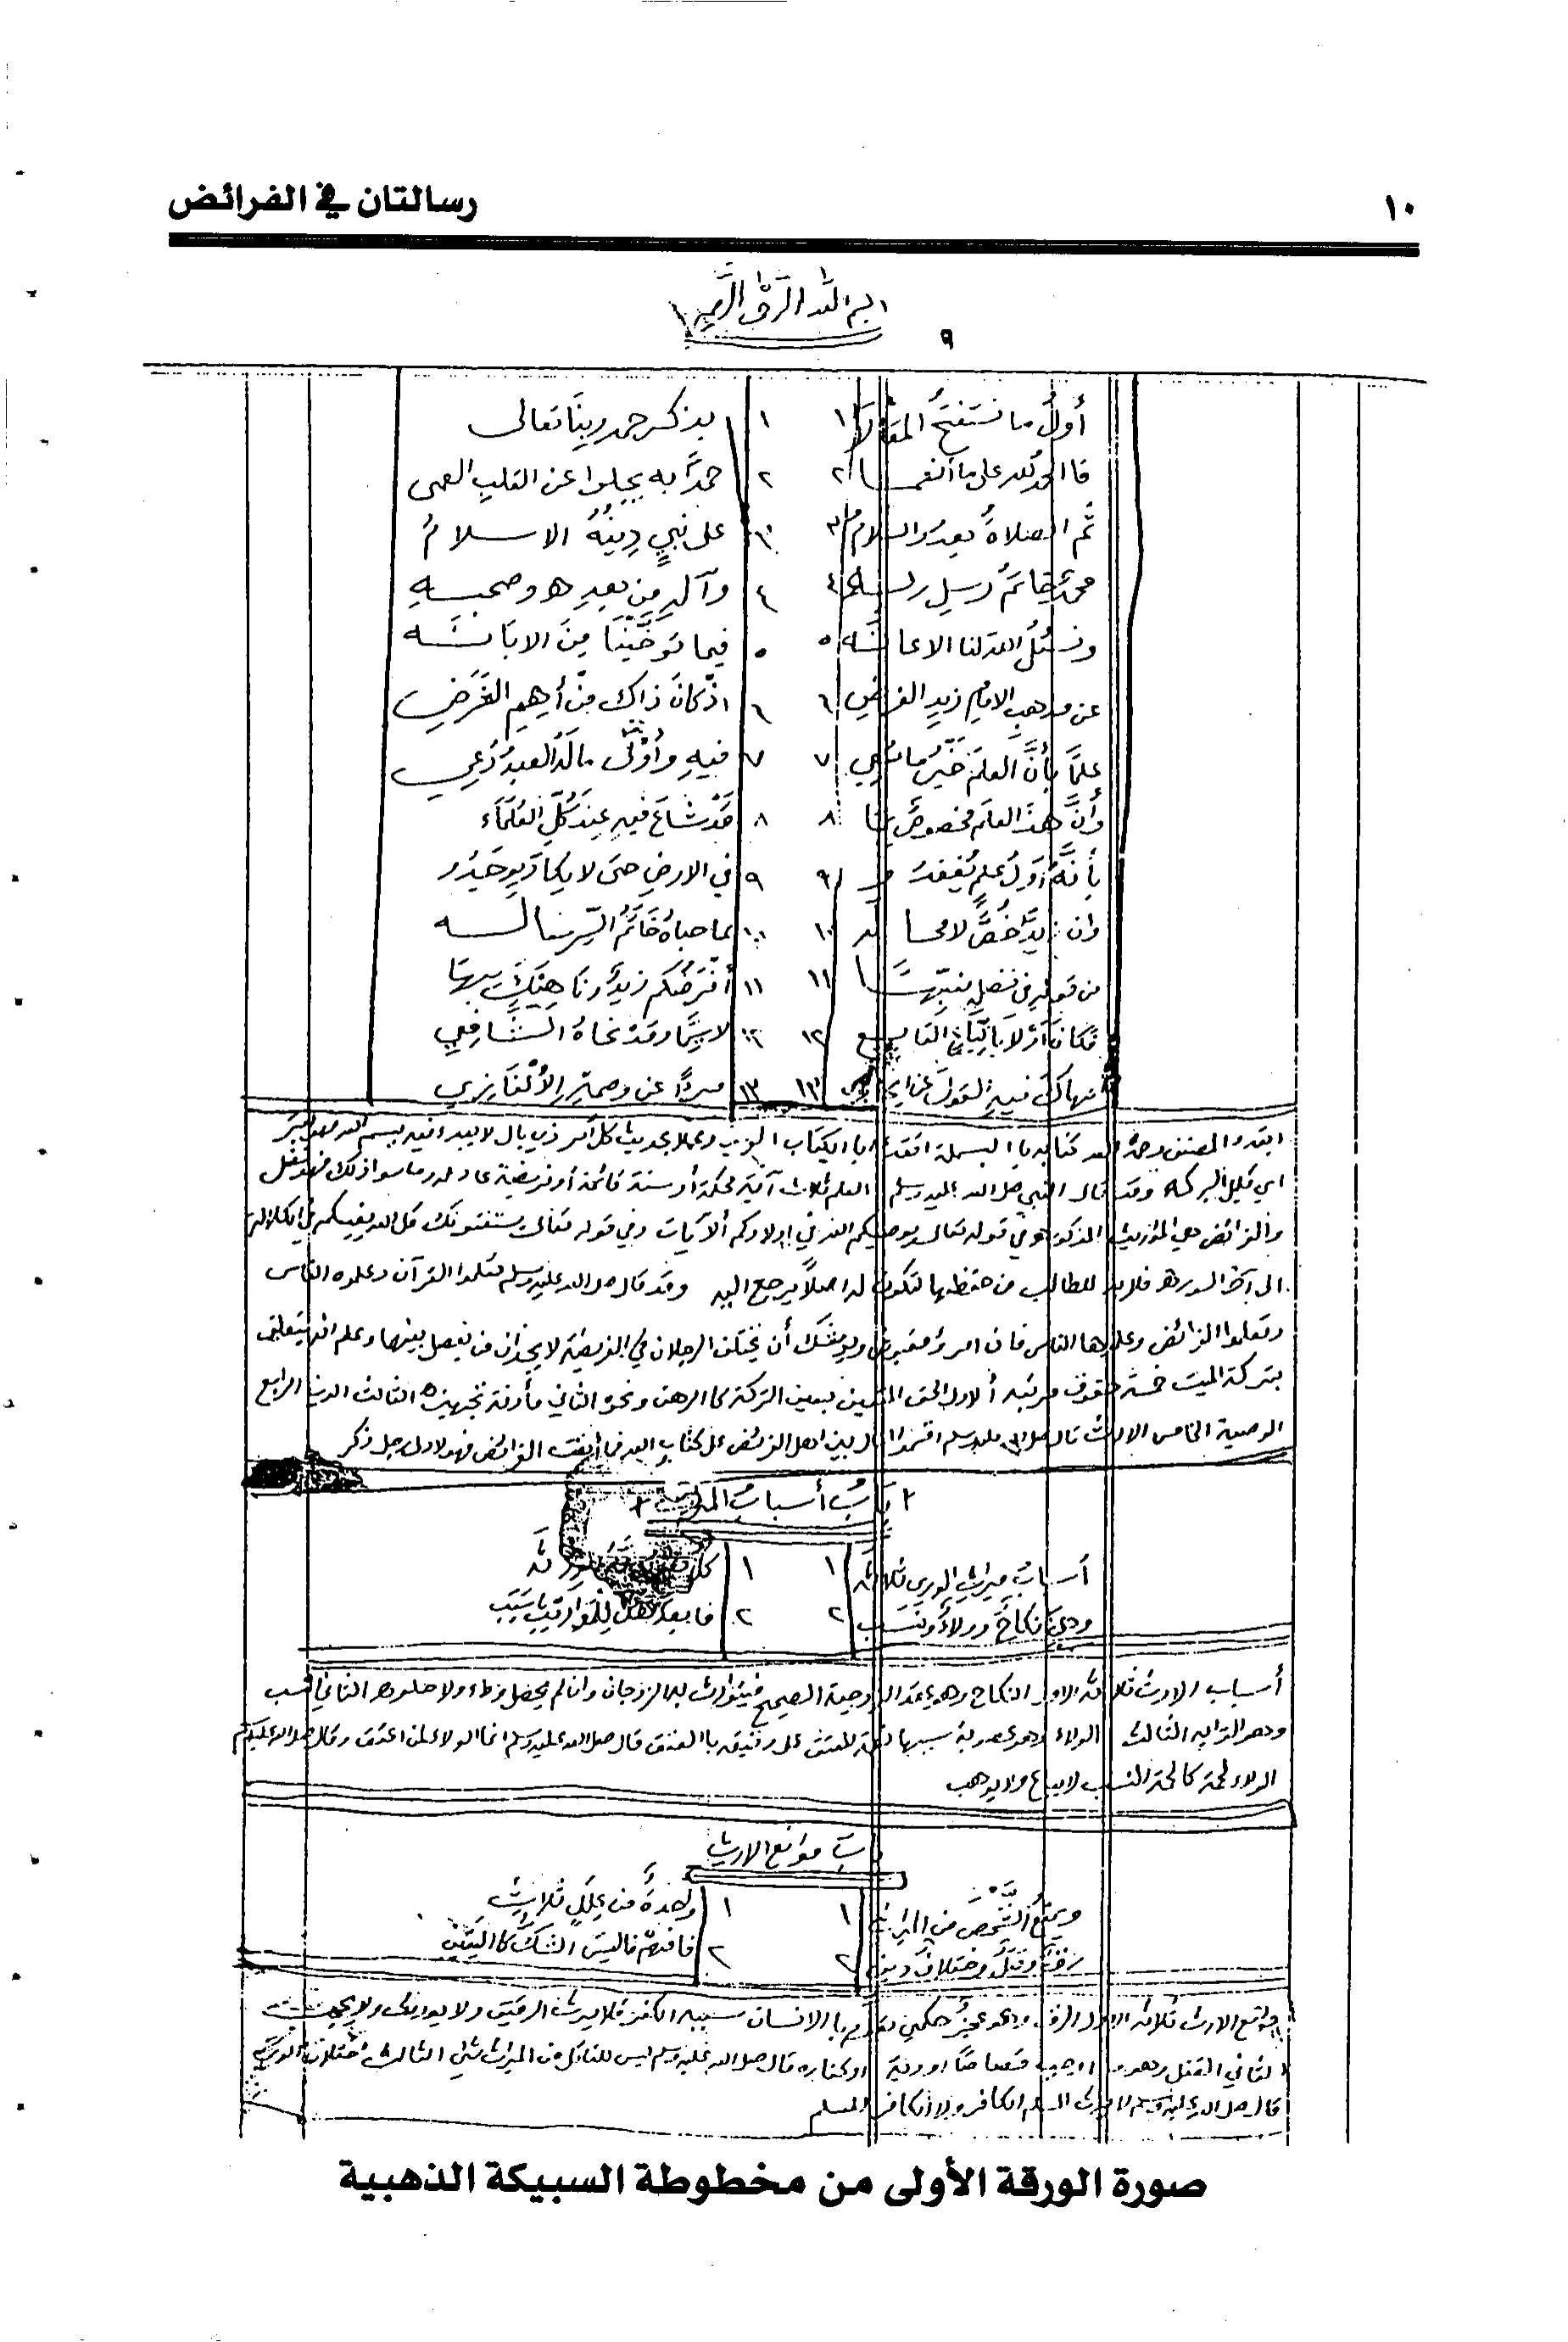 ١٠ رسالتان في الفرائض
بسم الله الرحمن الرحيم
٩
أول ما نستفتح المقالا ١ ١ بذكر حمد ربنا تعالى
فاالحمد لله على ما أنعما ٢ ٢ حمدًا به يجلوا عن القلب العمى
ثم الصلاة بعد والسلام ٣ ٣ على نبي دينه الاسلام
محمد خاتم رسل ربه ٤ ٤ وآله من بعده وصحبه
ونسئل الله لنا الاعانه ٥ ٥ فيما توخينا من الابانه
عن مذهب الامام زيد الفرضي ٦ ٦ اذ كان ذاك من أهم الغرض
علمًا بأن العلم خير ما سعي ٧ ٧ فيه وأولى ماله العبد دعي
وأن هذا العلم مخصوص بما ٨ ٨ قد شاع فيه عند كل العلماء
بأنه أول علم يفقد ٩ ٩ في الارض حتى لا يكاد يوجد
وان زيدًا خص لا محاله ١٠ ١٠ بما حباه خاتم الرساله
من قوله في فضله منبها ١١ ١١ أفرضكم زيد وناهيك بها
فكان أولا باتباع التابع ١٢ ١٢ لا سيما وقد نحاه الشافعي
فهاك فيه القول عن ايجاز ١٣ ١٣ مبرًا عن وصمة الألغاز
ابتدء المصنف رحمه الله كتابه باالبسملة اقتداء باالكتاب العزيز وعملا بحديث كل أمر ذي بال لا يبدا فيه ببسم الله فهو ابتر
اي قليل البركه وقد قال النبي صلى الله عليه وسلم العلم ثلاث آية محكمة أو سنة قائمة أو فريضة عادله وما سوا ذلك فهو فضل
والفرائض هي المواريث المذكوره في قوله تعالى يوصيكم الله في اولادكم ألآيات وفي قوله تعالى يستفتونك قل الله يفتيكم في الكلالة
الى آخر السوره فلا بد للطالب من حفظها لتكون له اصلاً يرجع اليه وقد قال صلى الله عليه وسلم تعلموا القرآن وعلموه الناس
وتعلموا الفرائض وعلموها الناس فان امرؤ مقبوض ويوشك أن يختلف الرجلان في الفريضة لا يجدان من يفصل بينهما وعلم انه يتعلق
بتركة الميت خمسة حقوق مرتبه ألاول الحق المتعلق بعين التركة كاالرهن ونحوه الثاني مأونة تجهيزه الثالث الدين الرابع
الوصية الخامس الارث قال صلى الله عليه وسلم اقسموا المال بين اهل الفرائض على كتاب الله فما أبقت الفرائض فهو لاولى رجل ذكر
باب أسباب الميراث
أسباب ميراث الورى ثلاثه ١ ١ كل يفيد ربه الوراثه
وهي نكاح وولاء ونسب ٢ ٢ ما بعدهن للمواريث سبب
أسباب الارث ثلاثه الاول النكاح وهو عقد الزوجية الصحيح فيتوارث به الزوجان وان لم يحصل وطء ولا خلوه الثاني النسب
وهو القرابه الثالث الولاء وهو عصوبة سببها نعمة المعتق على رقيقه باالعتق قال صلى الله عليه وسلم انما الولاء لمن اعتق وقال صلى الله عليه وسلم
الولاء لحمة كالحمة النسب لا يباع ولا يوهب
باب موانع الارث
ويمنع الشخص من الميراث ١ ١ واحدة من علل ثلاث
رق وقتل وختلاف دين ٢ ٢ فافهم فاليس الشك كاليقين
موانع الارث ثلاثه الاول الرق وهو عجز حكمي يقوم باالانسان سببه الكفر فلا يرث الرقيق ولا يورث ولا يحجب
الثاني القتل وهو ما اوجب قصاصًا او دية او كفاره قال صلى الله عليه وسلم ليس للقاتل من الميراث شئ الثالث اختلاف الدين
قال صلى الله عليه وسلم لا يرث المسلم الكافر ولا الكافر المسلم
صورة الورقة الأولى من مخطوطة السبيكة الذهبية